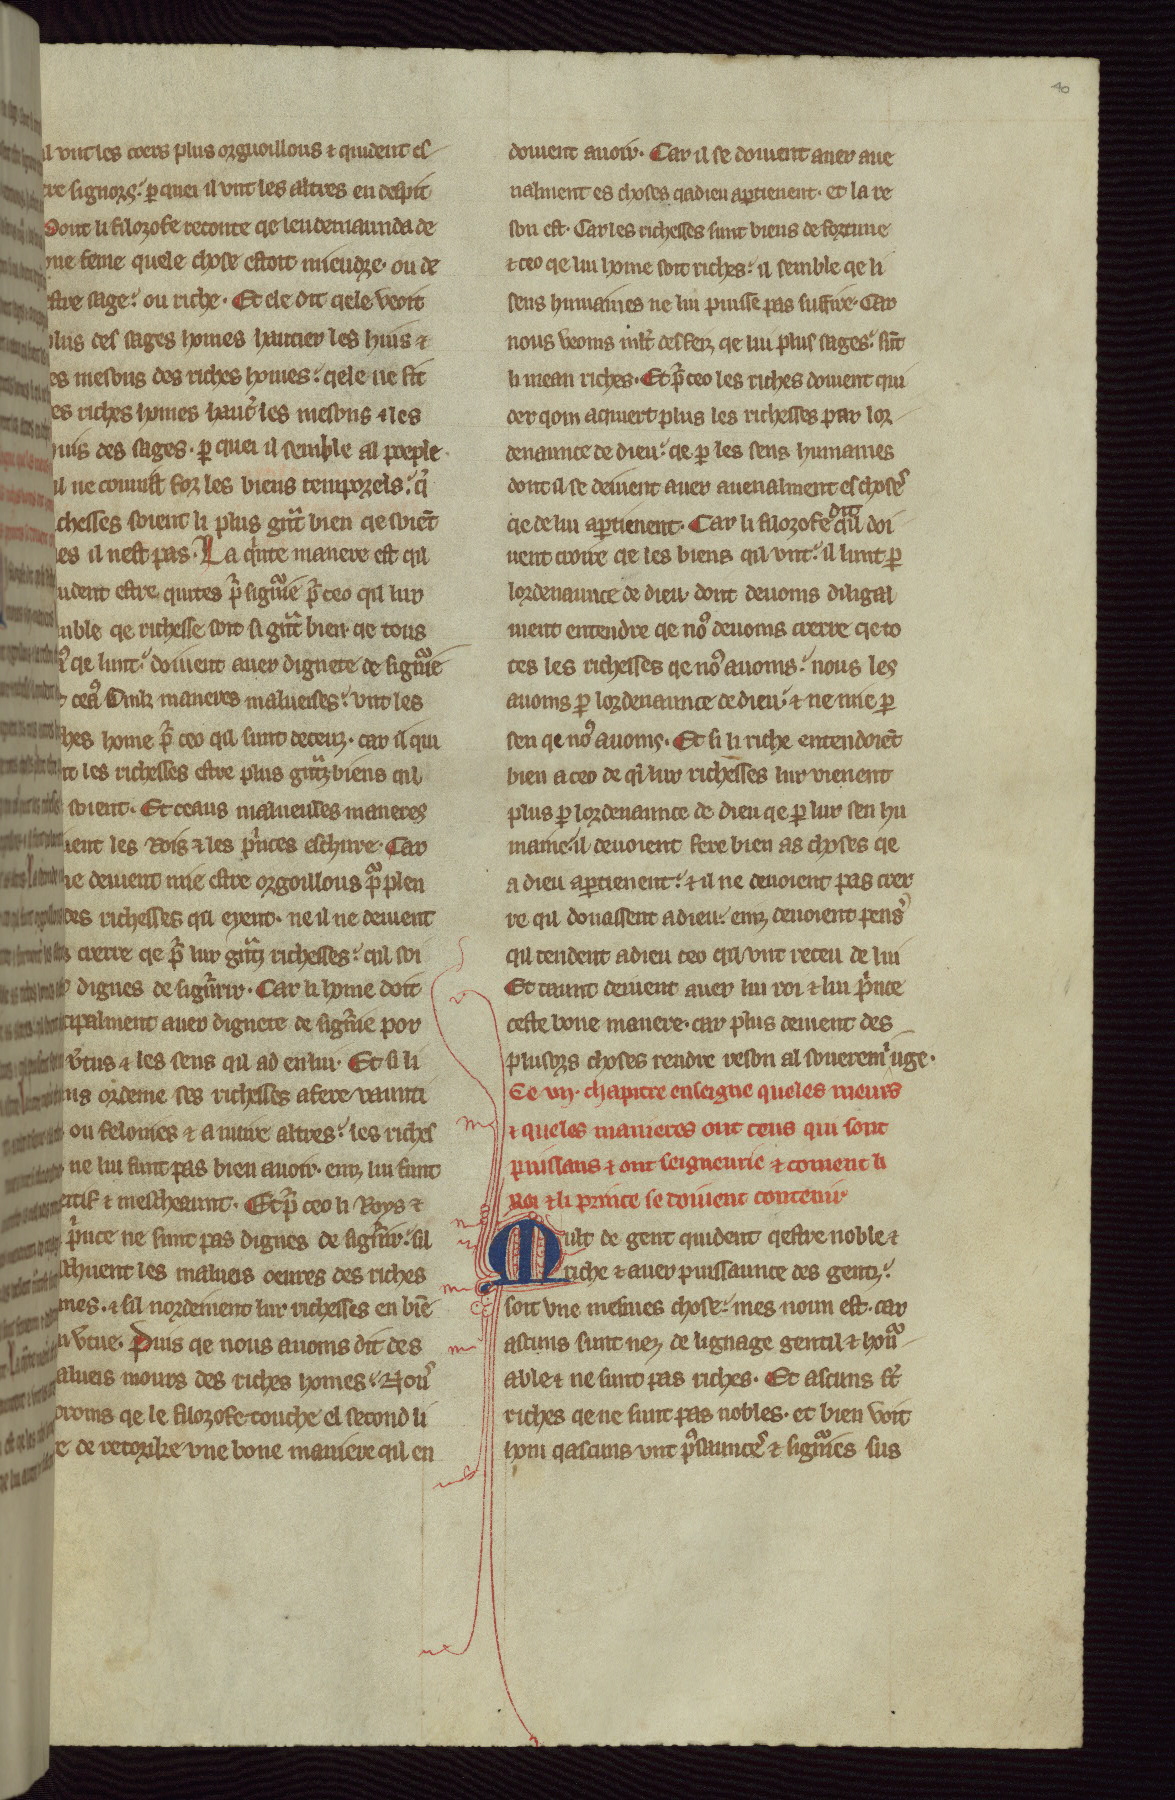 40
il vnt les coers plus orguoillous ⁊ quident es
tre signors. ꝑ quei il vnt les altres en despit
Dont li filozofe reconte qe len demaunda de
vne feme quele chose estoit mieudre. ou de
estre sage. ou riche. Et ele dit qele veoit
plus des sages homes hantier les huis ⁊
les mesons des riches homes. qele ne fit
les riches homes haut̉ les mesons ⁊ les
huis des sages. ꝑ quei il semble al poeple
il ne conuist for les biens temporels. q̃
chesses soient li plus gñt bien qe soiẽt
es il nest pas. La q̍nte manere est qil
uident estre quites p̃ sigñie p̃ ceo qil lur
mble qe richesse soit si gñt bien. qe tous
qe lunt. doiuent auer dignete de sigñie
cea Cink maneres malueises. vnt les
hes home p̃ ceo qil sunt deceuz. car il qui
nt les richesses estre plus gñtz biens qil
soient. Et ceaus malueises maneres
ient les Rois ⁊ les p̍nces eschiure. Car
ne deiuent mie estre orgoillous p̃ plen
des richesses qil eyent. ne il ne deiuent
crerre qe p̃ lur gñtz richesses. qil soi
dignes de sigñrir. Car li home doit
cipalment auer dignete de sigñie por
v̓tus ⁊ les sens qil ad en lui. Et si li
us ordeine ses richesses a fere vaunti
ou felonies ⁊ a nuire altres. les riches
ne lui sunt pas bien auoir. einz lui sunt
entif ⁊ mescheaunt. Et p̃ ceo li Roys ⁊
p̍nce ne sunt pas dignes de sigñir. sil
schiuent les malueis oeures des riches
mes. ⁊ sil nordeinent lur richesses en biẽ
n v̓tue. Puis qe nous auoms dit des
alueis mours des riches homes. Nou᷒
droms qe le filozofe touche el second li
e de retorike vne bone maniere qil en
doiuent auoir. Car il se doiuent auer aue
nalment es choses qa dieu aꝑtienent. et la re
son est. Car les richesses sunt biens de fortune
⁊ ceo qe lui home soit riches. il semble qe li
sens humaines ne lui puisse pas suffire. Car
nous veoms mlt̉ des ferz qe lui plus sages. sũt
li mean riches. Et p̃ ceo les riches doiuent qui
der qom aquert plus les richesses par lor
denaunce de dieu. qe ꝑ les sens humaines
dont il se deiuent auer auenalment es chose᷒
qe de lui aꝑtienent. Car li filozofe dit qil doi
uent croire qe les biens qil vnt. il lunt ꝑ
lordenaunce de dieu. dont deuoms diligal
ment entendre qe no᷒ deuoms crerre qe to
tes les richesses qe no᷒ auoms. nous les
auoms ꝑ lordenaunce de dieu. ⁊ ne mie ꝑ
sen qe no᷒ auoms. Et si li riche entendoiẽt
bien a ceo de qi lur richesses lur vienent
plus ꝑ lordenaunce de dieu qe ꝑ lur sen hu
maine. il deuoient fere bien as choses qe
a dieu aꝑtienent. ⁊ il ne deuoient pas crer
re qil donassent a dieu. einz deuoient pens̉
qil rendent a dieu ceo qil vnt receu de lui
Et taunt deiuent auer lui roi ⁊ lui p̍nce
ceste bone manere. car plus deiuent des
plusors choses rendre reson al souerein iuge.
Ce vij. chapitre enseigne queles meurs
⁊ queles manieres ont ceus qui sont
puissans ⁊ ont seigneurie ⁊ coment li
Roi ⁊ li prince se doiuent contenir
Mult de gent quident qestre noble ⁊
riche ⁊ auer puissaunce des gentz.
soit vne meimes chose. mes noun est. car
ascuns sunt nez de lignage gentil ⁊ hoñ
able ⁊ ne sunt pas riches. Et ascuns sũt
riches qe ne sunt pas nobles. et bien voit
hom qascuns vnt p̃saunce᷒ ⁊ sigñies sus